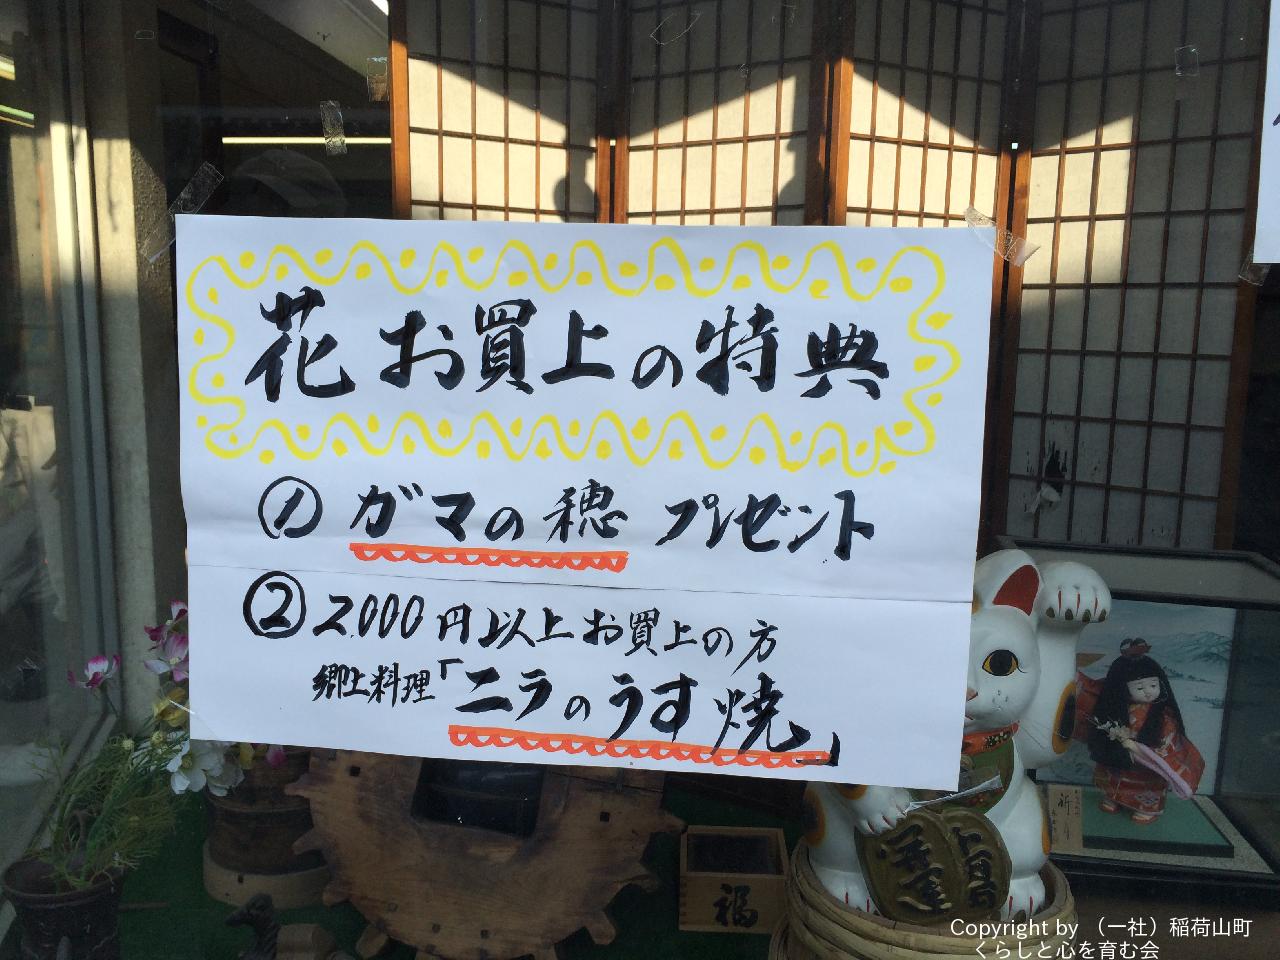 花お買上の特典
① ガマの穂 プレゼント
② 2,000円以上お買上の方
郷土料理「ニラのうす焼」
福
Copyright by （一社）稲荷山町
くらしと心を育む会